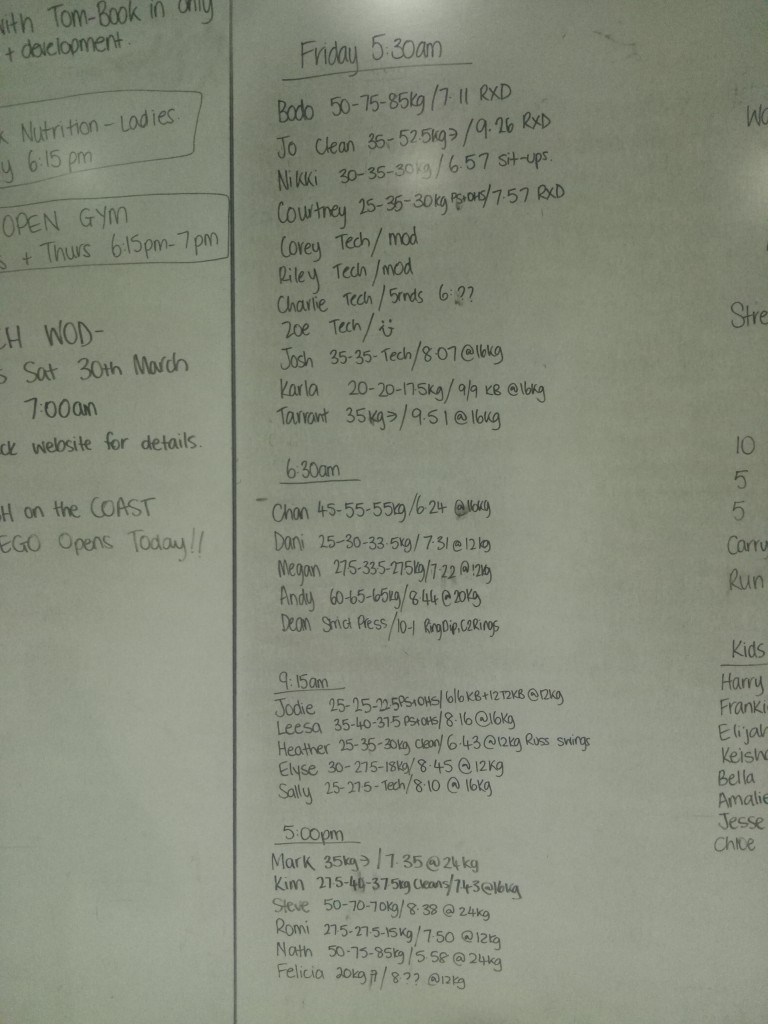 with Tom-Book in only
+ development.
Nutrition - Ladies
y 6:15pm
OPEN GYM
s + Thurs 6:15pm-7pm
H WOD-
s Sat 30th March
7:00am
ck website for details.
H on the COAST
EGO Opens Today!!
Friday 5:30am
Bodo 50-75-85kg/7.11 RXD
Jo Clean 35-52.5kg→/9.26 RXD
Nikki 30-35-30kg/6.57 Sit-ups.
Courtney 25-35-30kg PS+OHS/7.57 RXD
Corey Tech/mod
Riley Tech/mod
Charlie Tech/5rnds 6:??
Zoe Tech/
Josh 35-35-Tech/8.07@16kg
Karla 20-20-17.5kg/9/9 KB @16kg
Tarrant 35kg→/9.51@16kg
6:30am
Chan 45-55-55kg/6.24 @16kg
Dani 25-30-33.5kg/7.31@12kg
Megan 27.5-33.5-27.5kg/7.22@12kg
Andy 60-65-65kg/8.44@20kg
Dean Strict Press/10-1 RingDip, C2Rings
9:15am
Jodie 25-25-22.5PS+OHS/6/6KB+12 12KB@12kg
Leesa 35-40-37.5 PS+OHS/8.16@16kg
Heather 25-35-30kg Clean/6.43@12kg Russ swings
Elyse 30-27.5-18kg/8.45@12kg
Sally 25-27.5-Tech/8.10@16kg
5:00pm
Mark 35kg→/7.35@24kg
Kim 27.5-40-37.5kg Cleans/7.43@16kg
Steve 50-70-70kg/8.38@24kg
Romi 27.5-27.5-15kg/7.50@12kg
Nath 50-75-85kg/5.58@24kg
Felicia 20kg /8?? @12kg
Wo
Stre
10
5
5
Carry
Run
Kids
Harry
Franki
Elijah
Keish
Bella
Amalie
Jesse
Chloe